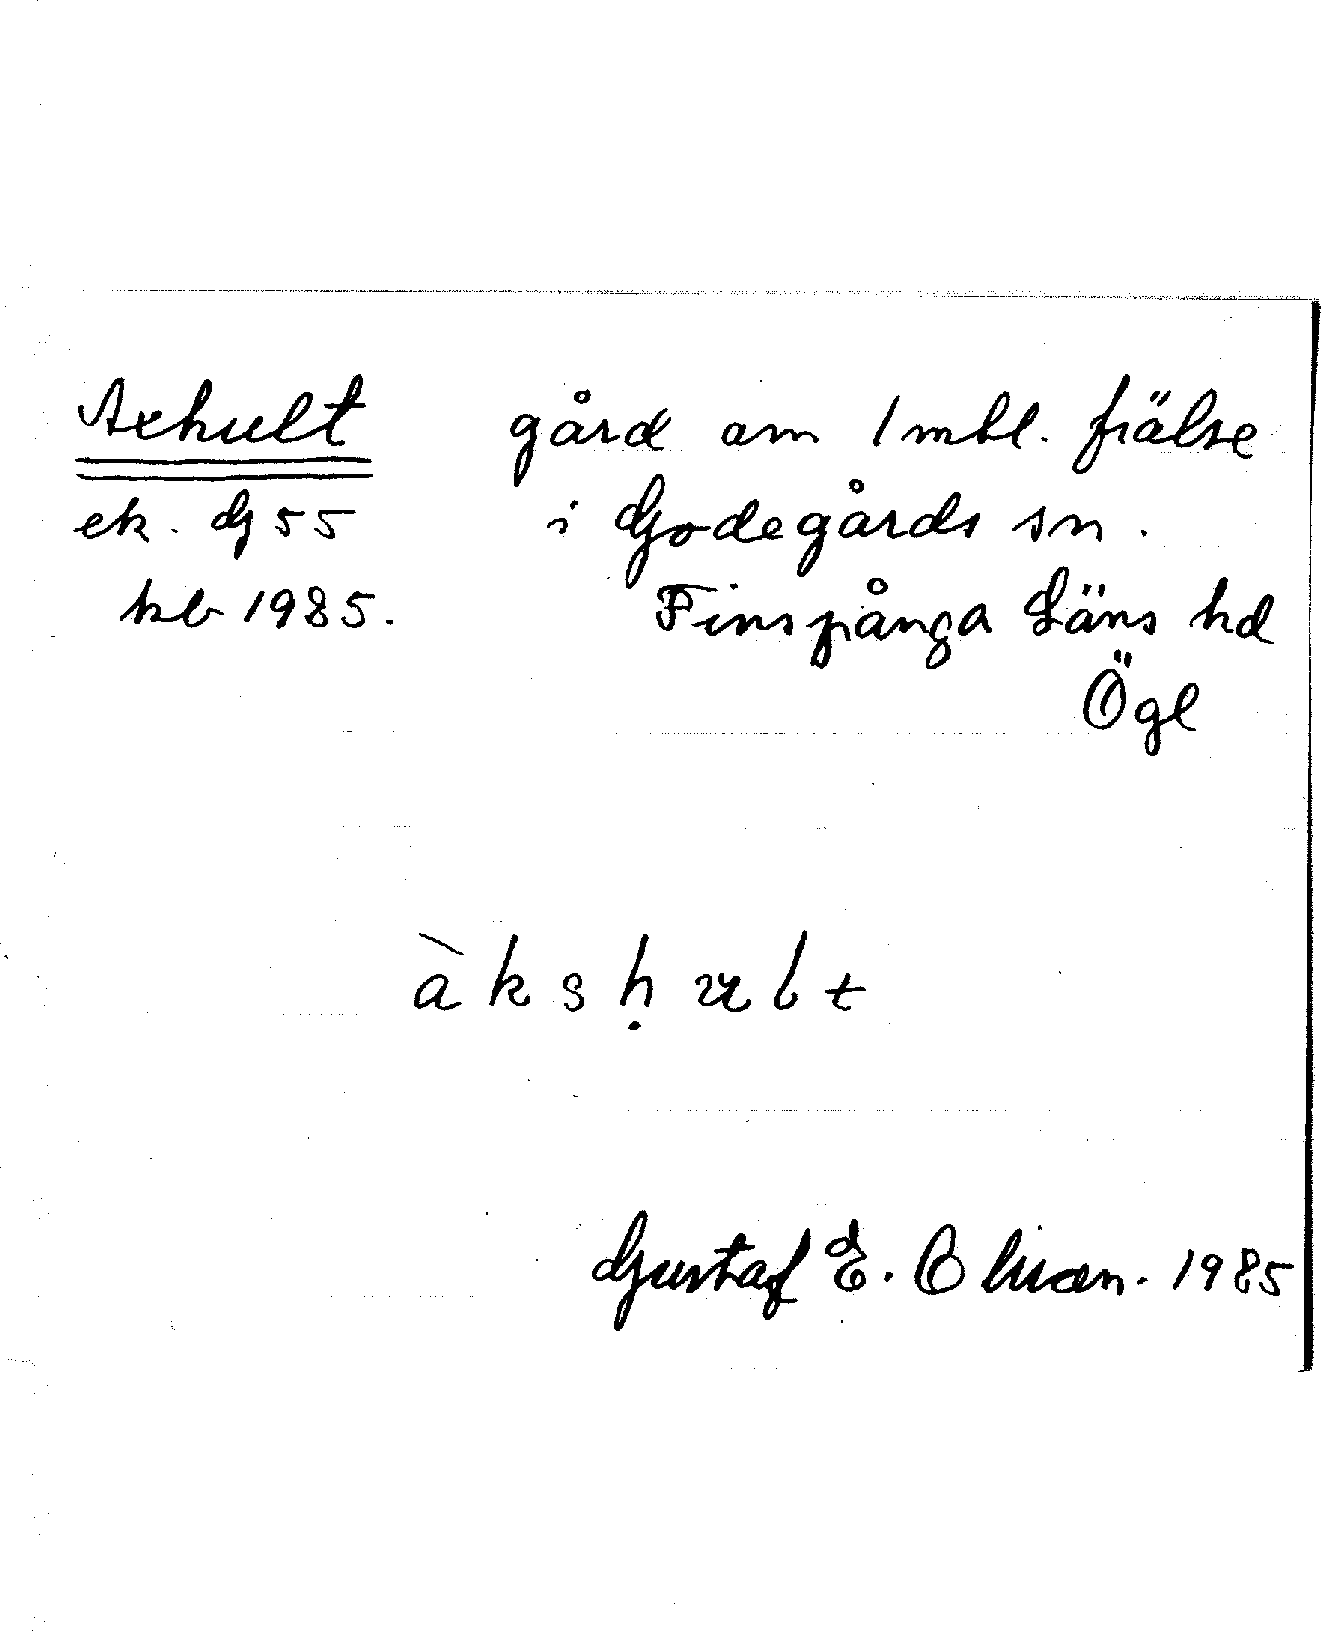 Axhult gård om 1 mtl. frälse
ek. dj 55 i Godegårds sn.
kb 1985. Finspånga Läns hd
Ögl
àksḥult
Gustaf E. Olsson. 1985